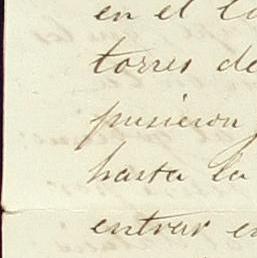 en el
torres de
pusieron
hasta la
entrar en